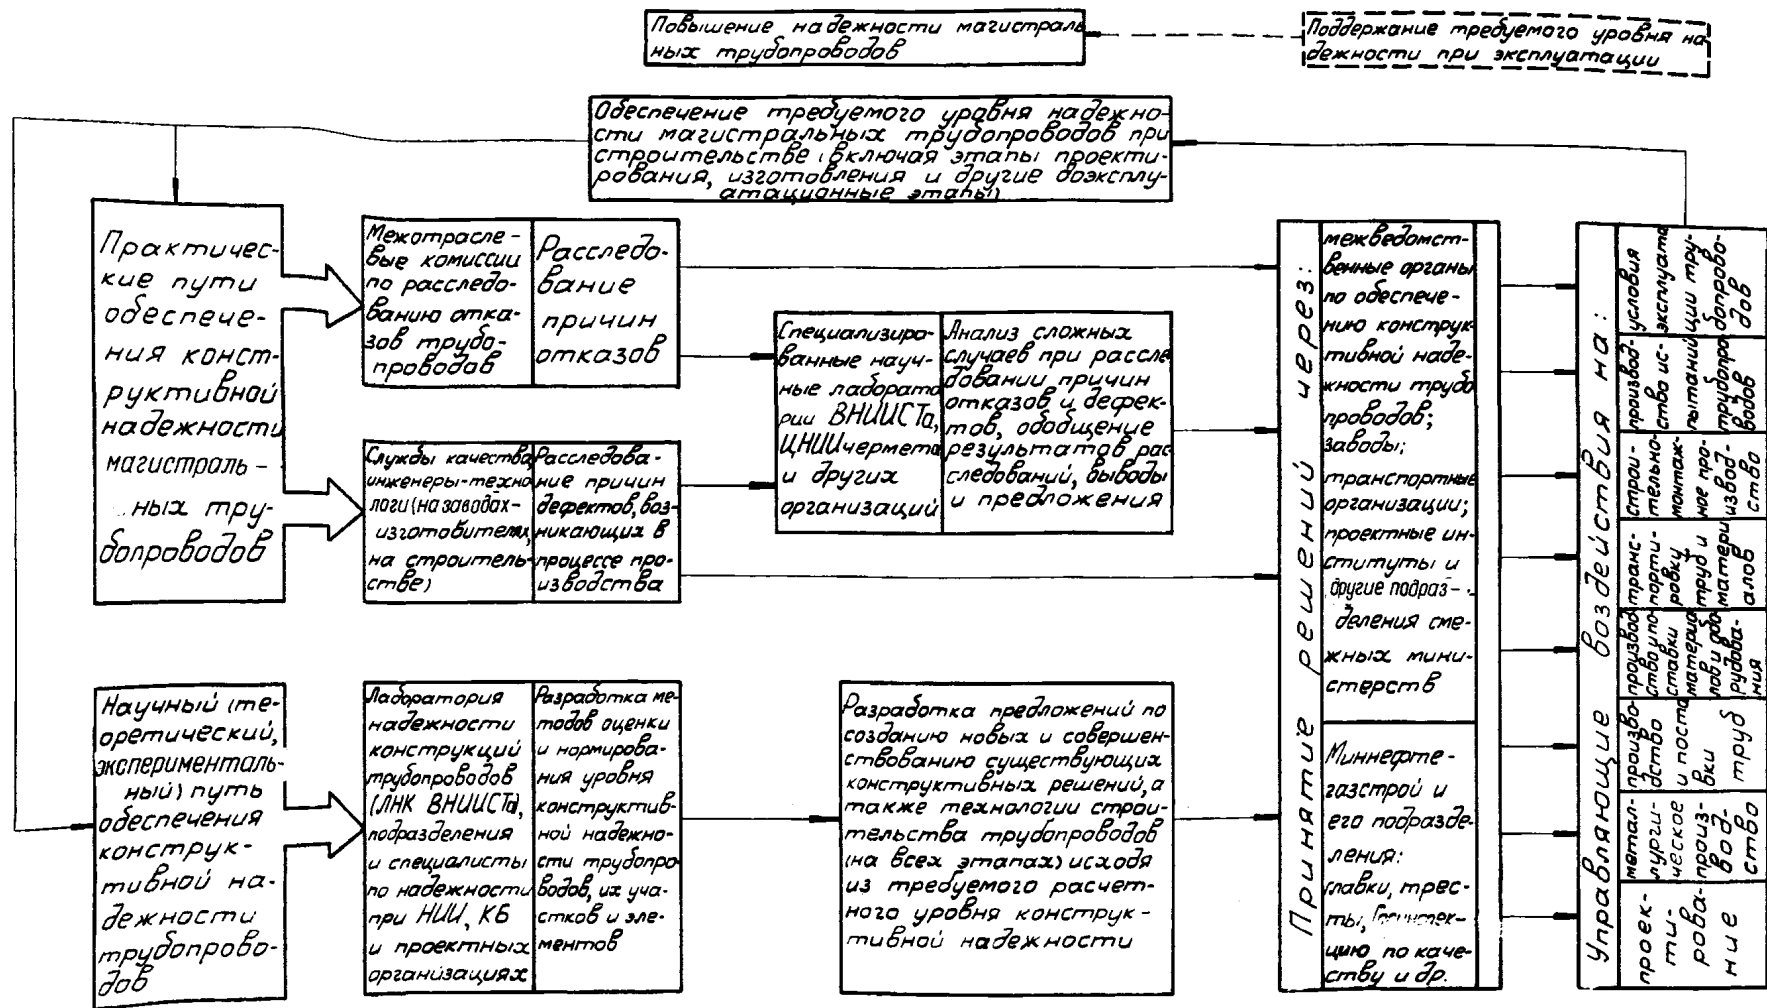 Повышение надежности магистраль
ных трубопроводов
Поддержание требуемого уровня на
дежности при эксплуатации
Обеспечение требуемого уровня надежно-
сти магистральных трубопроводов при
строительстве (включая этапы проекти-
рования, изготовления и другие доэксплу-
атационные этапы)
Практичес-
кие пути
обеспече-
ния конст-
руктивной
надежности
магистраль-
ных тру-
бопроводов
Межотрасле-
вые комиссии
по расследо-
ванию отка-
зов трубо-
проводов
Расследо-
вание
причин
отказов
Службы качества,
инженеры-техно
логи (на заводах-
изготовителях,
на строитель-
стве)
Расследова-
ние причин
дефектов, воз-
никающих в
процессе про-
изводства
Специализиро-
ванные науч-
ные лаборато
рии ВНИИСТа,
ЦНИИчермета
и других
организаций
Анализ сложных
случаев при рассле
довании причин
отказов и дефек-
тов, обобщение
результатов рас
следований, выводы
и предложения
Научный (те-
оретический,
эксперименталь-
ный) путь
обеспечения
конструк-
тивной на-
дежности
трубопрово-
дов
Лаборатория
надежности
конструкций
трубопроводов
(ЛНК ВНИИСТа),
подразделения
и специалисты
по надежности
при НИИ, КБ
и проектных
организациях
Разработка ме-
тодов оценки
и нормирова-
ния уровня
конструктив-
ной надежно-
сти трубопро-
водов, их уча-
стков и эле-
ментов
Разработка предложений по
созданию новых и совершен-
ствованию существующих
конструктивных решений, а
также технологии строи-
тельства трубопроводов
(на всех этапах) исходя
из требуемого расчет-
ного уровня конструк-
тивной надежности
Принятие решений через:
межведомст-
венные органы
по обеспече-
нию конструк-
тивной наде-
жности трубо
проводов;
заводы;
транспортные
организации;
проектные ин-
ституты и
другие подраз-
деления сме-
жных мини-
стерств
Миннефте-
газстрой и
его подразде-
ления:
главки, трес-
ты, Госинспек-
цию по каче-
ству и др.
Управляющие воздействия на:
условия
эксплуата
ции тру-
допрово-
дов
производ-
ство ис-
пытаний
трубопро
водов
строи-
тельно-
монтаж-
ное про-
извод-
ство
транс-
порти-
ровку
труб и
матери
алов
производ
ство и по-
ставки
материа
лов и обо
рудова-
ния
произво-
дство
и поста
вки
труб
метал-
лурги-
ческое
произ-
вод-
ство
проек-
ти-
рова-
ние